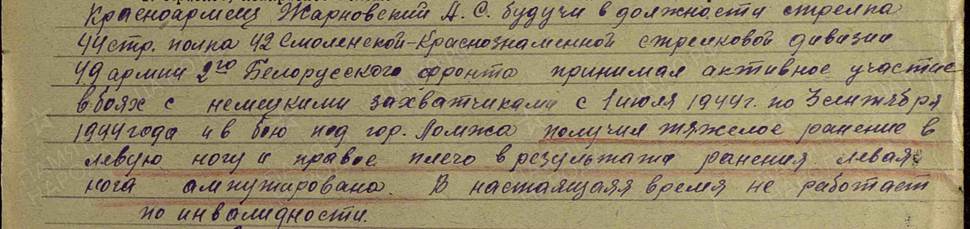 Красноармеец Жарновский А.С. будучи в должности стрелка
44 стр. полка 42 Смоленской-Краснознаменной стрелковой дивизии
49 армии 2го Белорусского фронта принимал активное участие
в боях с немецкими захватчиками с 1 июля 1944г. по 3 сентября
1944 года и в бою под гор. Ломжа получил тяжелое ранение в
левую ногу и правое плечо в результате ранения левая
нога ампутирована. В настаящая время не работает
по инвалидности.